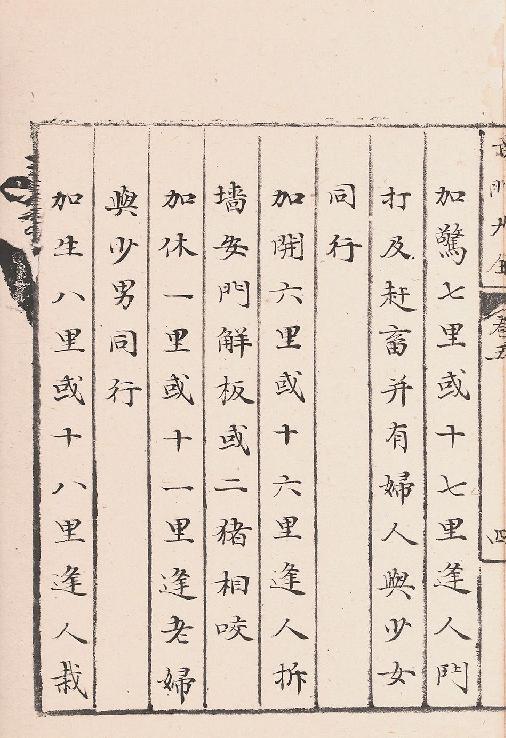 加驚七里或十七里逢人鬥
打及赶畜并有婦人與少女
同行
加開六里或十六里逢人拆
墻安門解板或二猪相咬
加休一里或十一里逢老婦
與少男同行
加生八里或十八里逢人栽